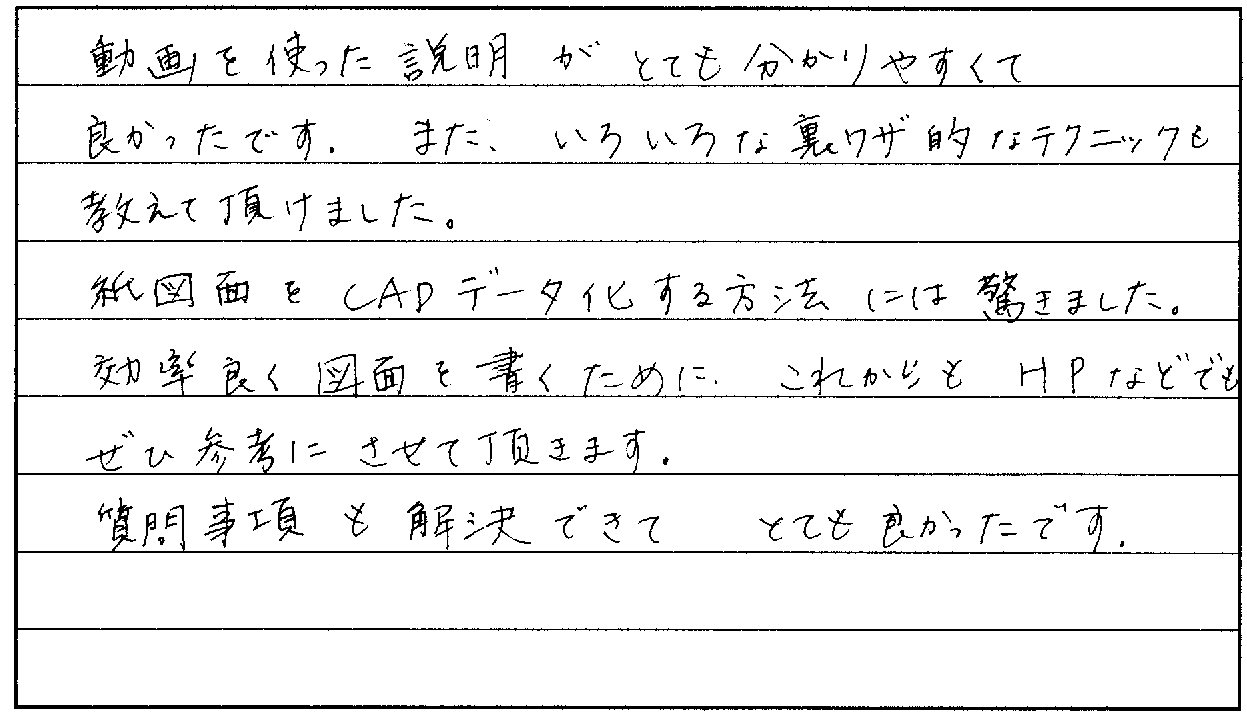 動画を使った説明がとても分かりやすくて
良かったです. また、いろいろな裏ワザ的なテクニックも
教えて頂けました。
紙図面をCADデータ化する方法には驚きました。
効率良く図面を書くために、これからもHPなどでも
ぜひ参考にさせて頂きます.
質問事項も解決できて とても良かったです.